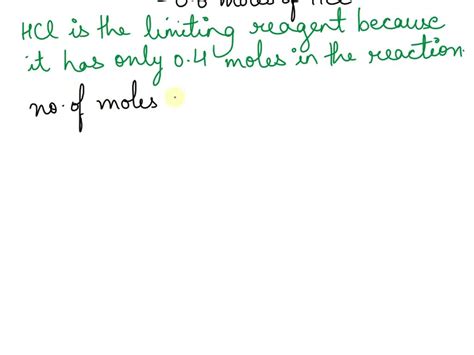 moles of HCl
HCl is the limiting reagent because
it has only 0.4 moles in the reaction.
no. of moles